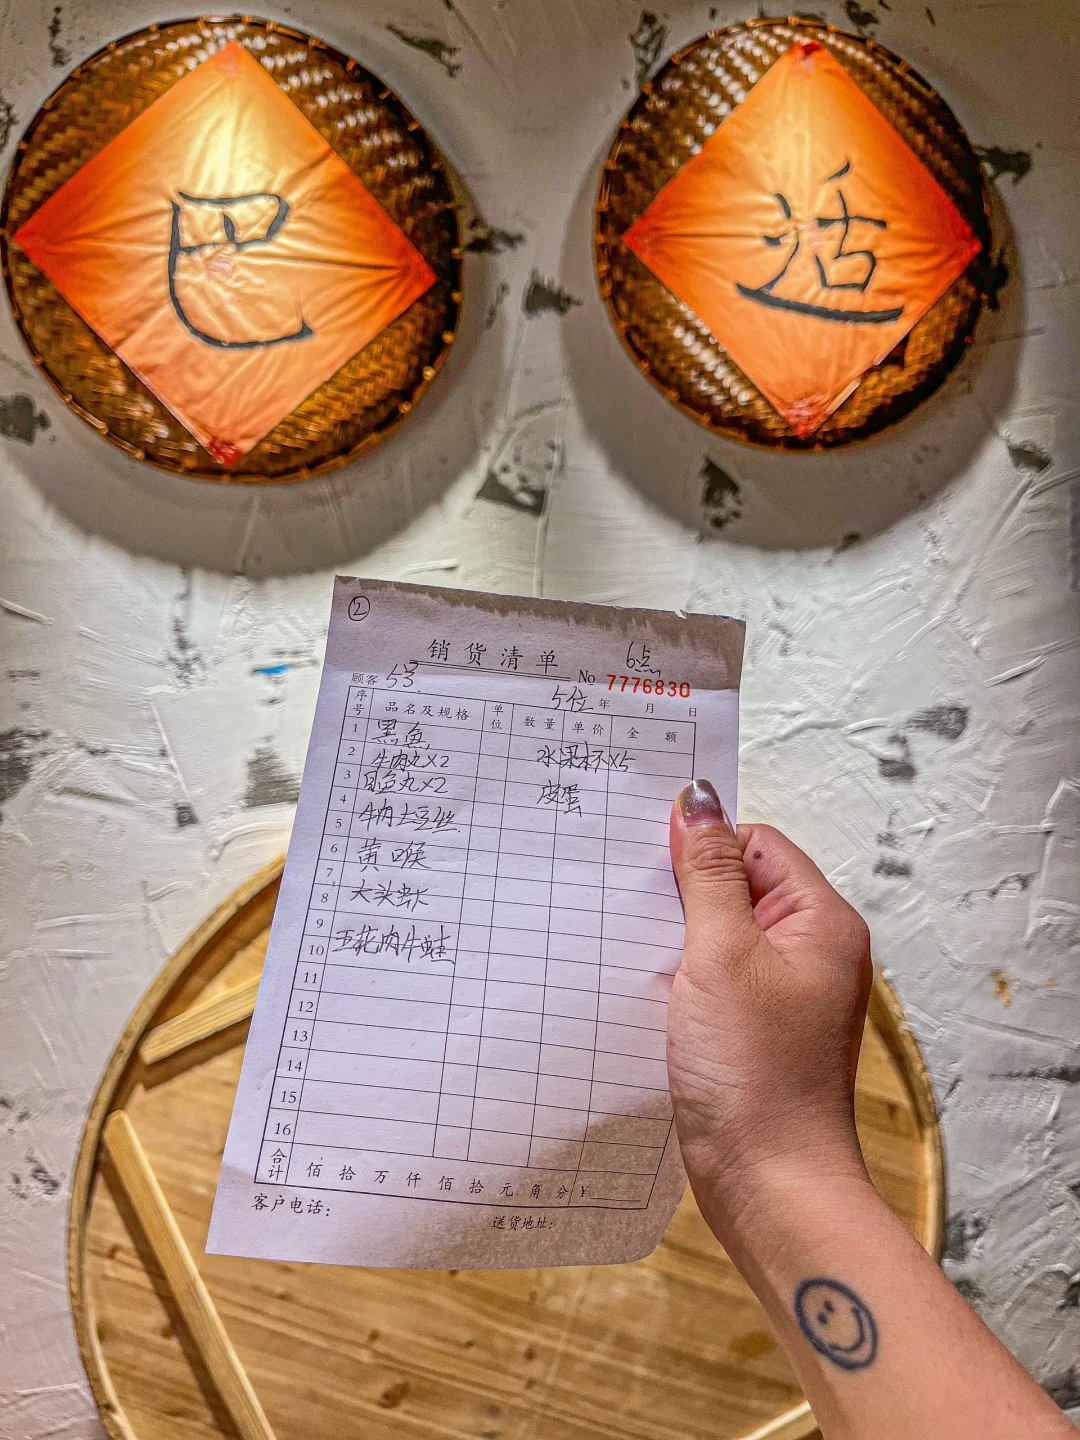 巴 适
②
销货清单
6点
No 7776830
顾客 5号
5位 年 月 日
序号 品名及规格 单位 数量 单价 金额
1 黑鱼
2 牛肉丸X2 水果杯X5
3 目鱼丸X2
4 皮蛋
5 牛肉土豆丝
6 黄喉
7
8 大头虾
9
10 五花肉牛蛙
11
12
13
14
15
16
合计 佰 拾 万 仟 佰 拾 元 角 分 ¥
客户电话：
送货地址：